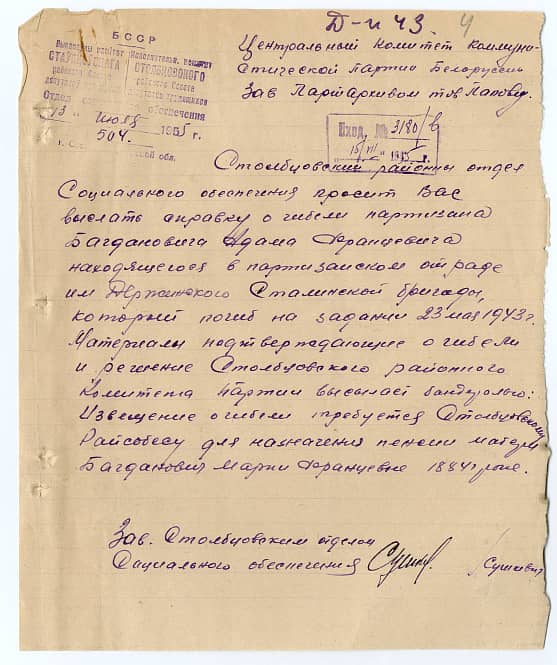 Д-н 43. 4
БССР
Выканаўчы камітэт Исполнительный комитет
СТАЎБЦОЎСКАГА СТОЛБЦОВСКОГО
раённага Савета районного Совета
дэпутатаў депутатов трудящихся
Отдел обеспечения
13 " июля 1955 г.
504.
г. ской обл.
Центральный Комитет Коммуни-
стической Партии Белоруссии
Зав Партархивом тов
Вход. № 3180/в
15/VII 1955 г.
Столбцовский районы отдел
Социального обеспечения просит Вас
выслать справку о гибели партизана
Багдановича Адама Францевича
находящегося в партизанском отраде
им Держинского Сталинской бригады,
который погиб на задании 23 мая 1943 г.
Материалы подтверждающие о гибели
и решение Столбцовского районного
Комитета партии высылает бандеролью:
Извещение о гибели требуется Столбцовскому
Райсобесу для назначения пенсии матери
Багданович Марии Францевне 1884 г рож.
Зав. Столбцовским отделом
Социального обеспечения /Сушкевич